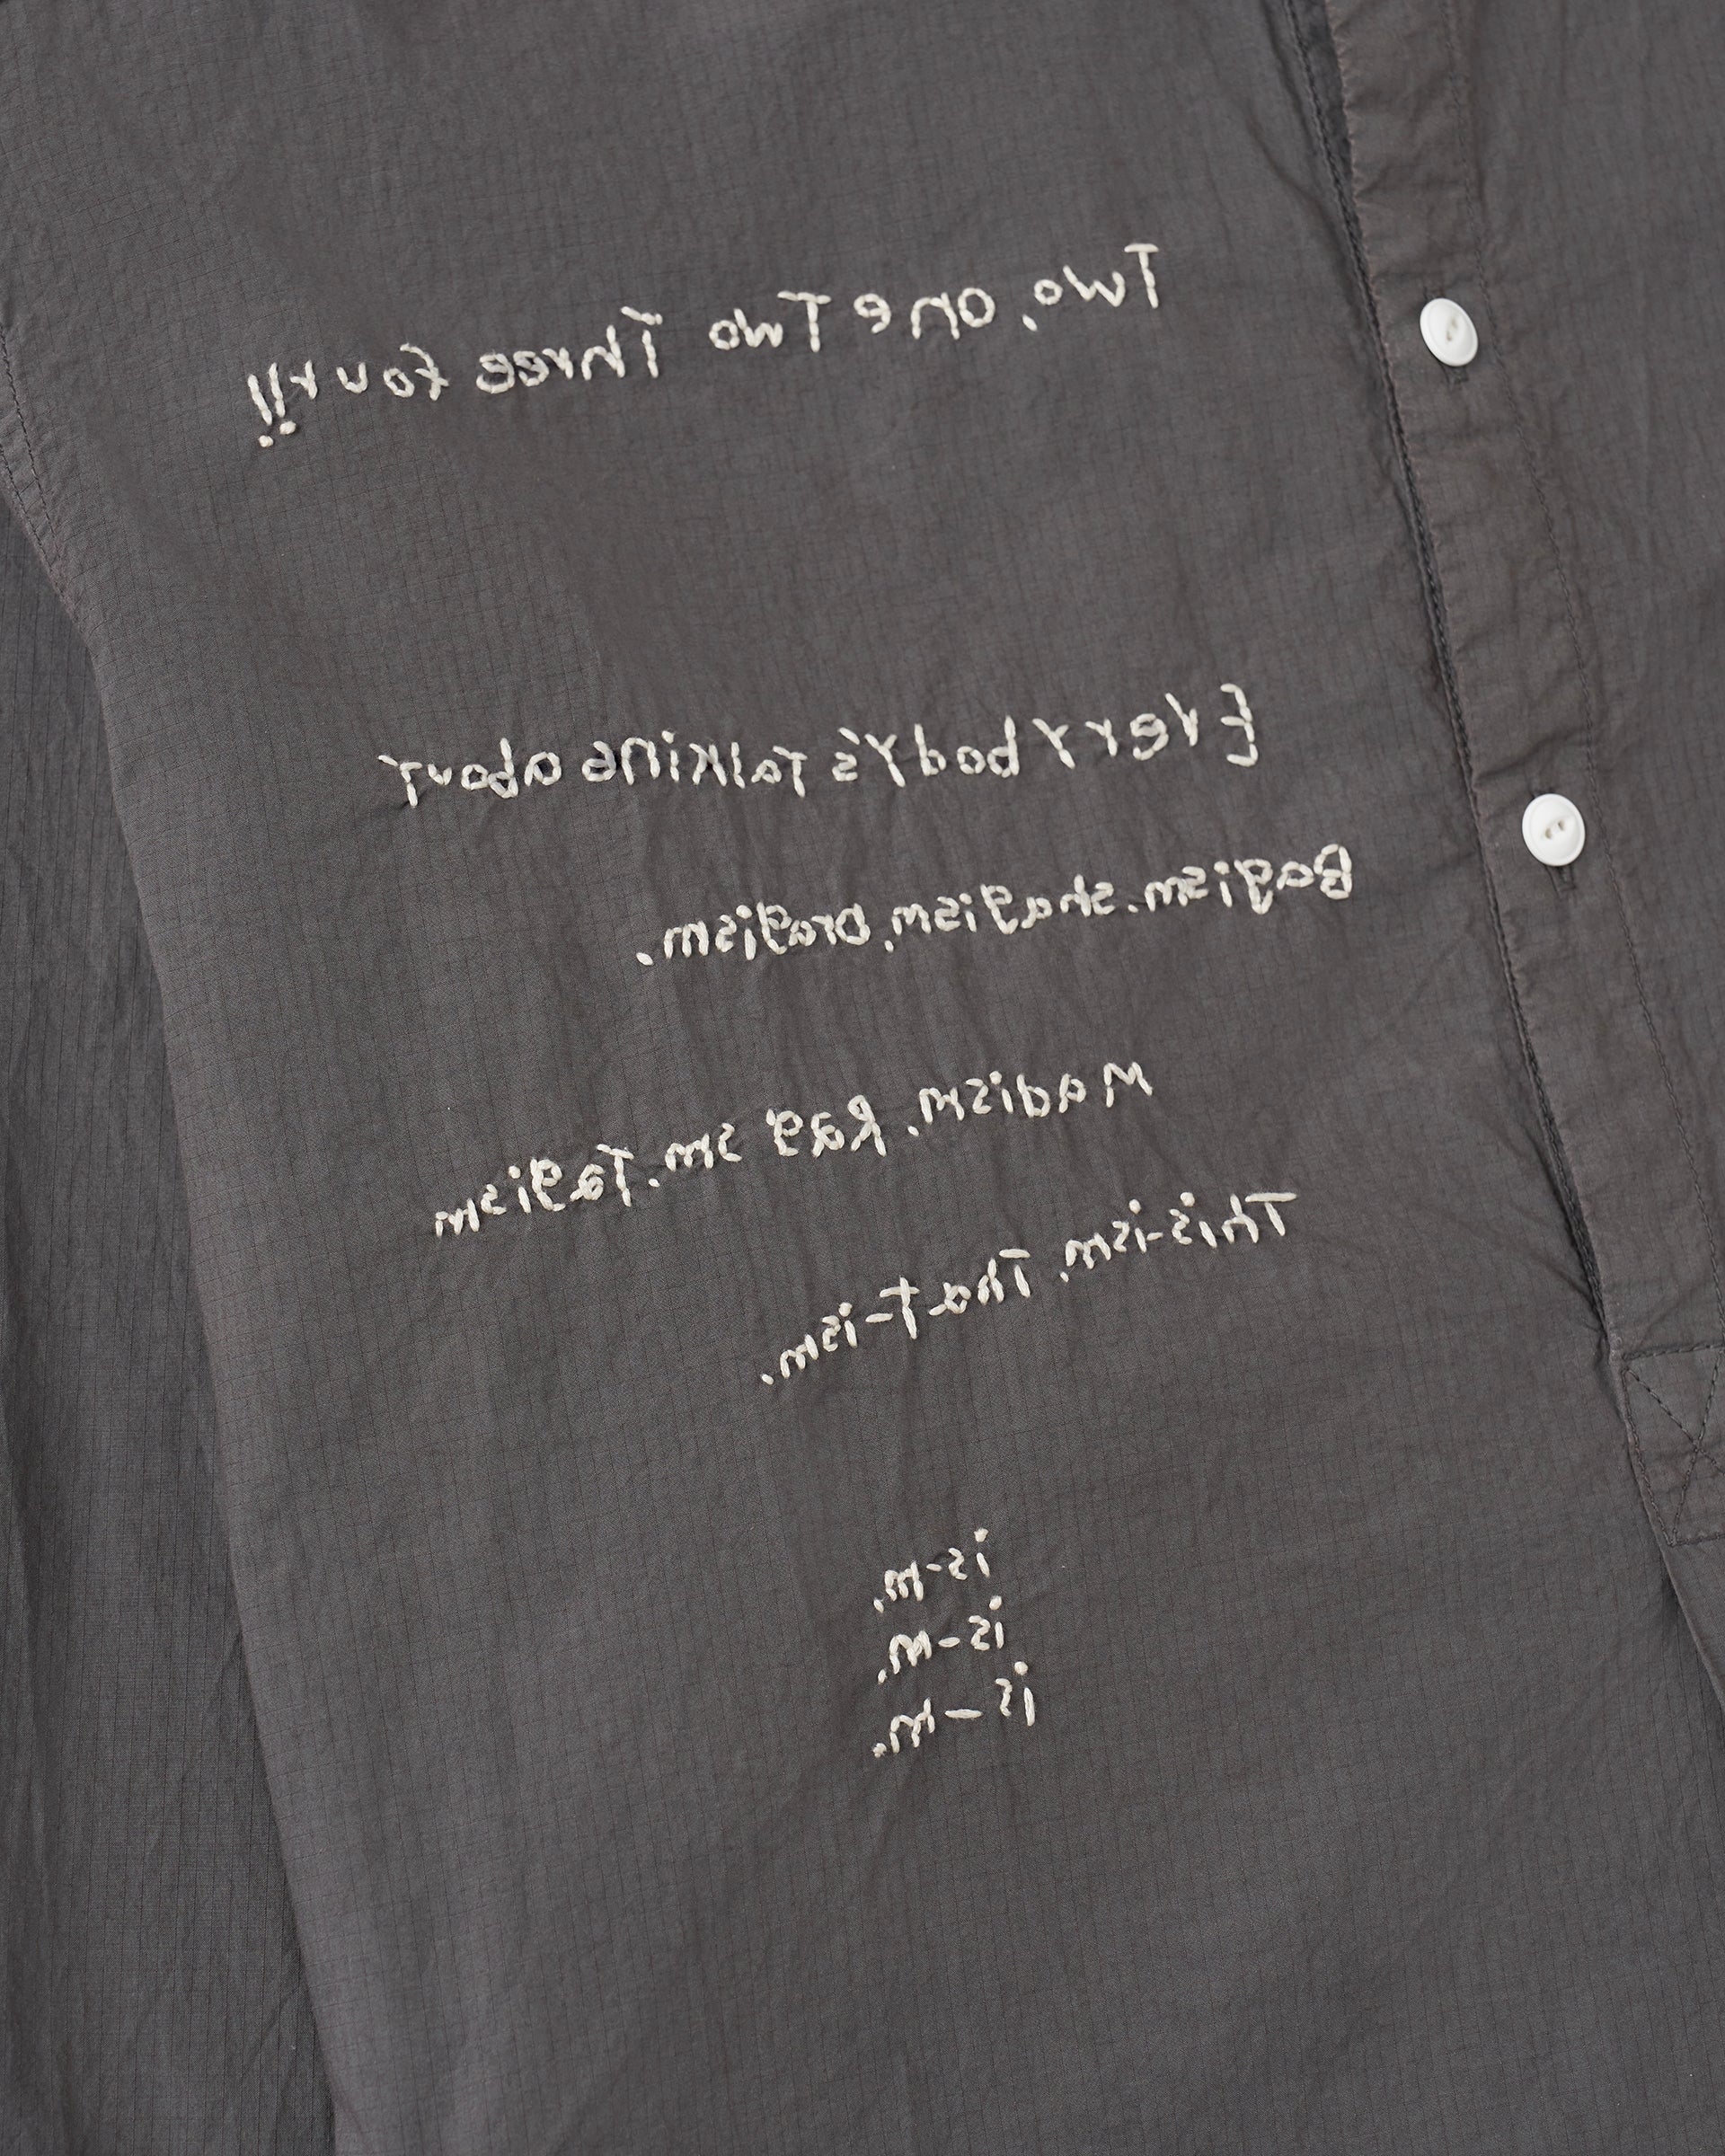 Two, one Two Three four!!
Everybody's talking about
Bagism. shagism, Dragism.
Madism. Rag sm. Tagism
This-ism. That-ism.
is-m.
is-m.
is-m.